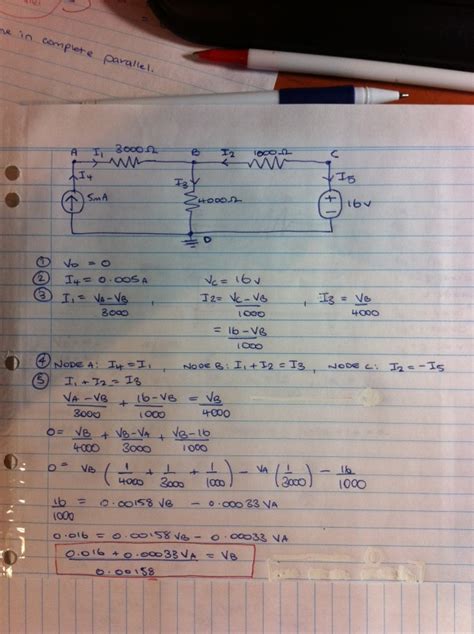 me in complete parallel.
A I₁ 3000Ω B I₂ 1000Ω C
I₄ I₃ I₅
5mA 4000Ω 16V
D
① V₀ = 0
② I₄ = 0.005A V꜀ = 16V
③ I₁ = (VA - VB)/3000 , I₂ = (VC - VB)/1000 , I₃ = VB/4000
= (16 - VB)/1000
④ NODE A: I₄ = I₁ , NODE B: I₁ + I₂ = I₃ , NODE C: I₂ = -I₅
⑤ I₁ + I₂ = I₃
(VA - VB)/3000 + (16 - VB)/1000 = VB/4000
0 = VB/4000 + (VB - VA)/3000 + (VB - 16)/1000
0 = VB (1/4000 + 1/3000 + 1/1000) - VA (1/3000) - 16/1000
16/1000 = 0.00158 VB - 0.00033 VA
0.016 = 0.00158 VB - 0.00033 VA
(0.016 + 0.00033 VA)/0.00158 = VB